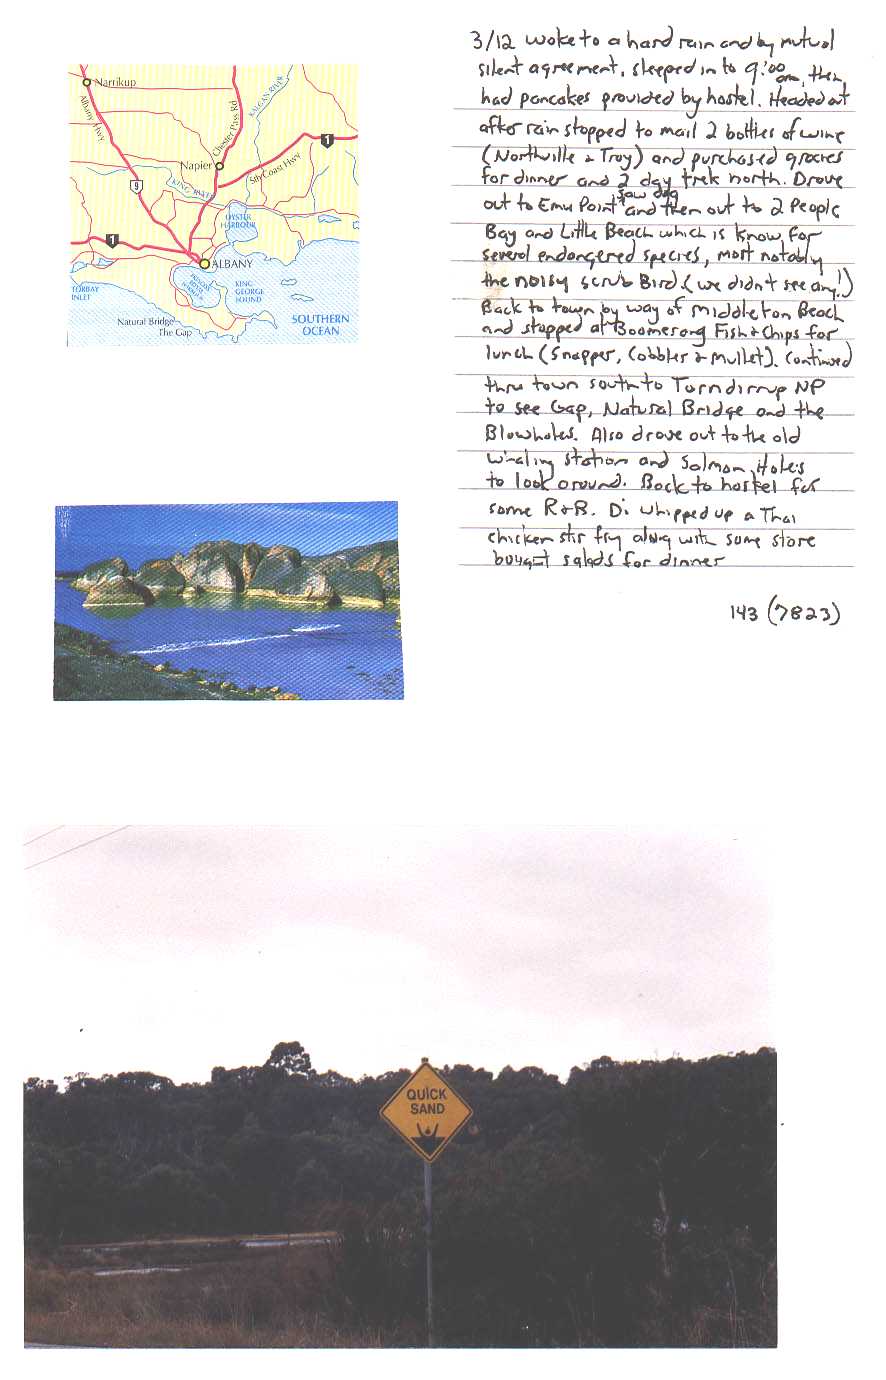 Narrikup
Albany Hwy
Chester Pass Rd
KALGAN RIVER
1
Napier
Sth Coast Hwy
9
KING RIVER
OYSTER
HARBOUR
1
ALBANY
PRINCESS
ROYAL
HARBOUR
KING
GEORGE
SOUND
TORBAY
INLET
Natural Bridge
The Gap
SOUTHERN
OCEAN
3/12 woke to a hard rain and by mutual
silent agreement, sleeped in to 9:00 am, then
had pancakes provided by hostel. Headed out
after rain stopped to mail 2 bottles of wine
(Northville & Troy) and purchased groceries
for dinner and 2 day trek north. Drove
saw dog
out to Emu Point and then out to 2 People
Bay and Little Beach which is know for
several endangered species, most notably
the noisy scrub Bird (we didn't see any!)
Back to town by way of Middleton Beach
and stopped at Boomerang Fish & Chips for
lunch (Snapper, Cobbler & Mullet). Continued
thru town south to Torndirrup NP
to see Gap, Natural Bridge and the
Blowholes. Also drove out to the old
whaling station and Salmon Holes
to look around. Back to hostel for
some R&R. Di whipped up a Thai
chicken stir fry along with some store
bought salads for dinner
143 (7823)
QUICK
SAND